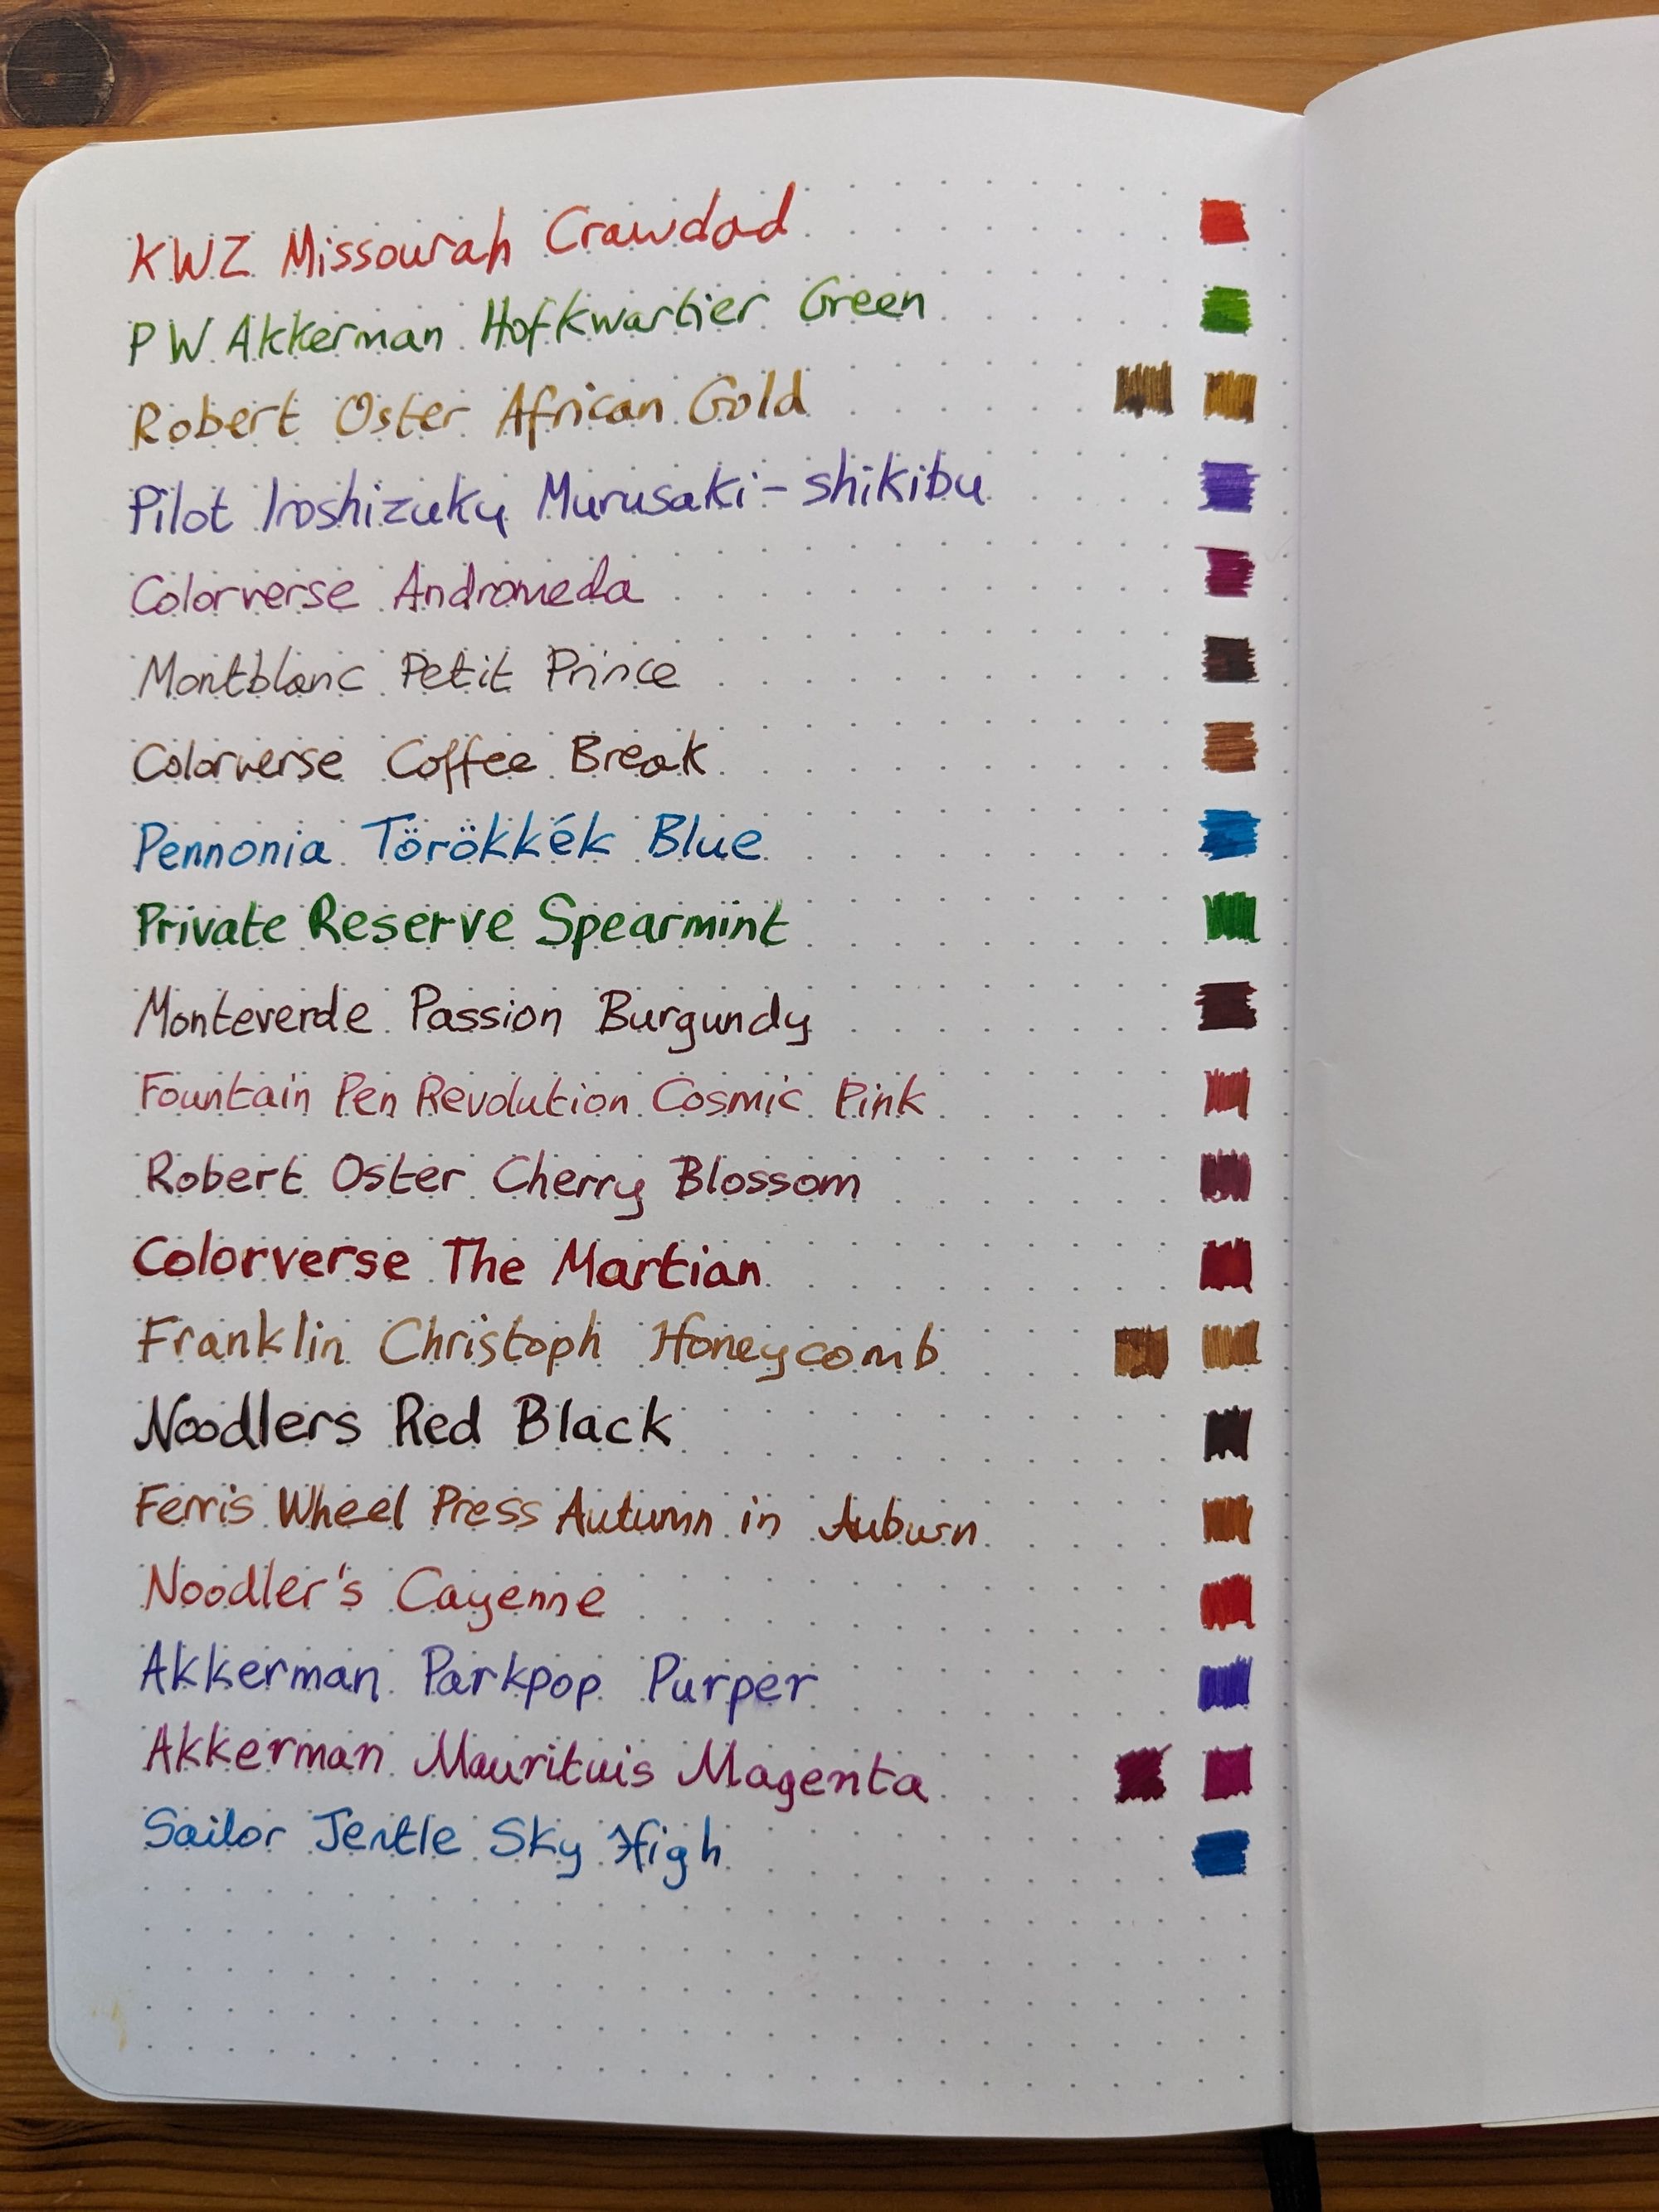 KWZ Missourah Crawdad
PW Akkerman Hofkwartier Green
Robert Oster African Gold
Pilot Iroshizuku Murusaki-shikibu
Colorverse Andromeda
Montblanc Petit Prince
Colorverse Coffee Break
Pennonia Törökkék Blue
Private Reserve Spearmint
Monteverde Passion Burgundy
Fountain Pen Revolution Cosmic Pink
Robert Oster Cherry Blossom
Colorverse The Martian
Franklin Christoph Honeycomb
Noodlers Red Black
Ferris Wheel Press Autumn in Auburn
Noodler's Cayenne
Akkerman Parkpop Purper
Akkerman Maurituis Magenta
Sailor Jentle Sky High